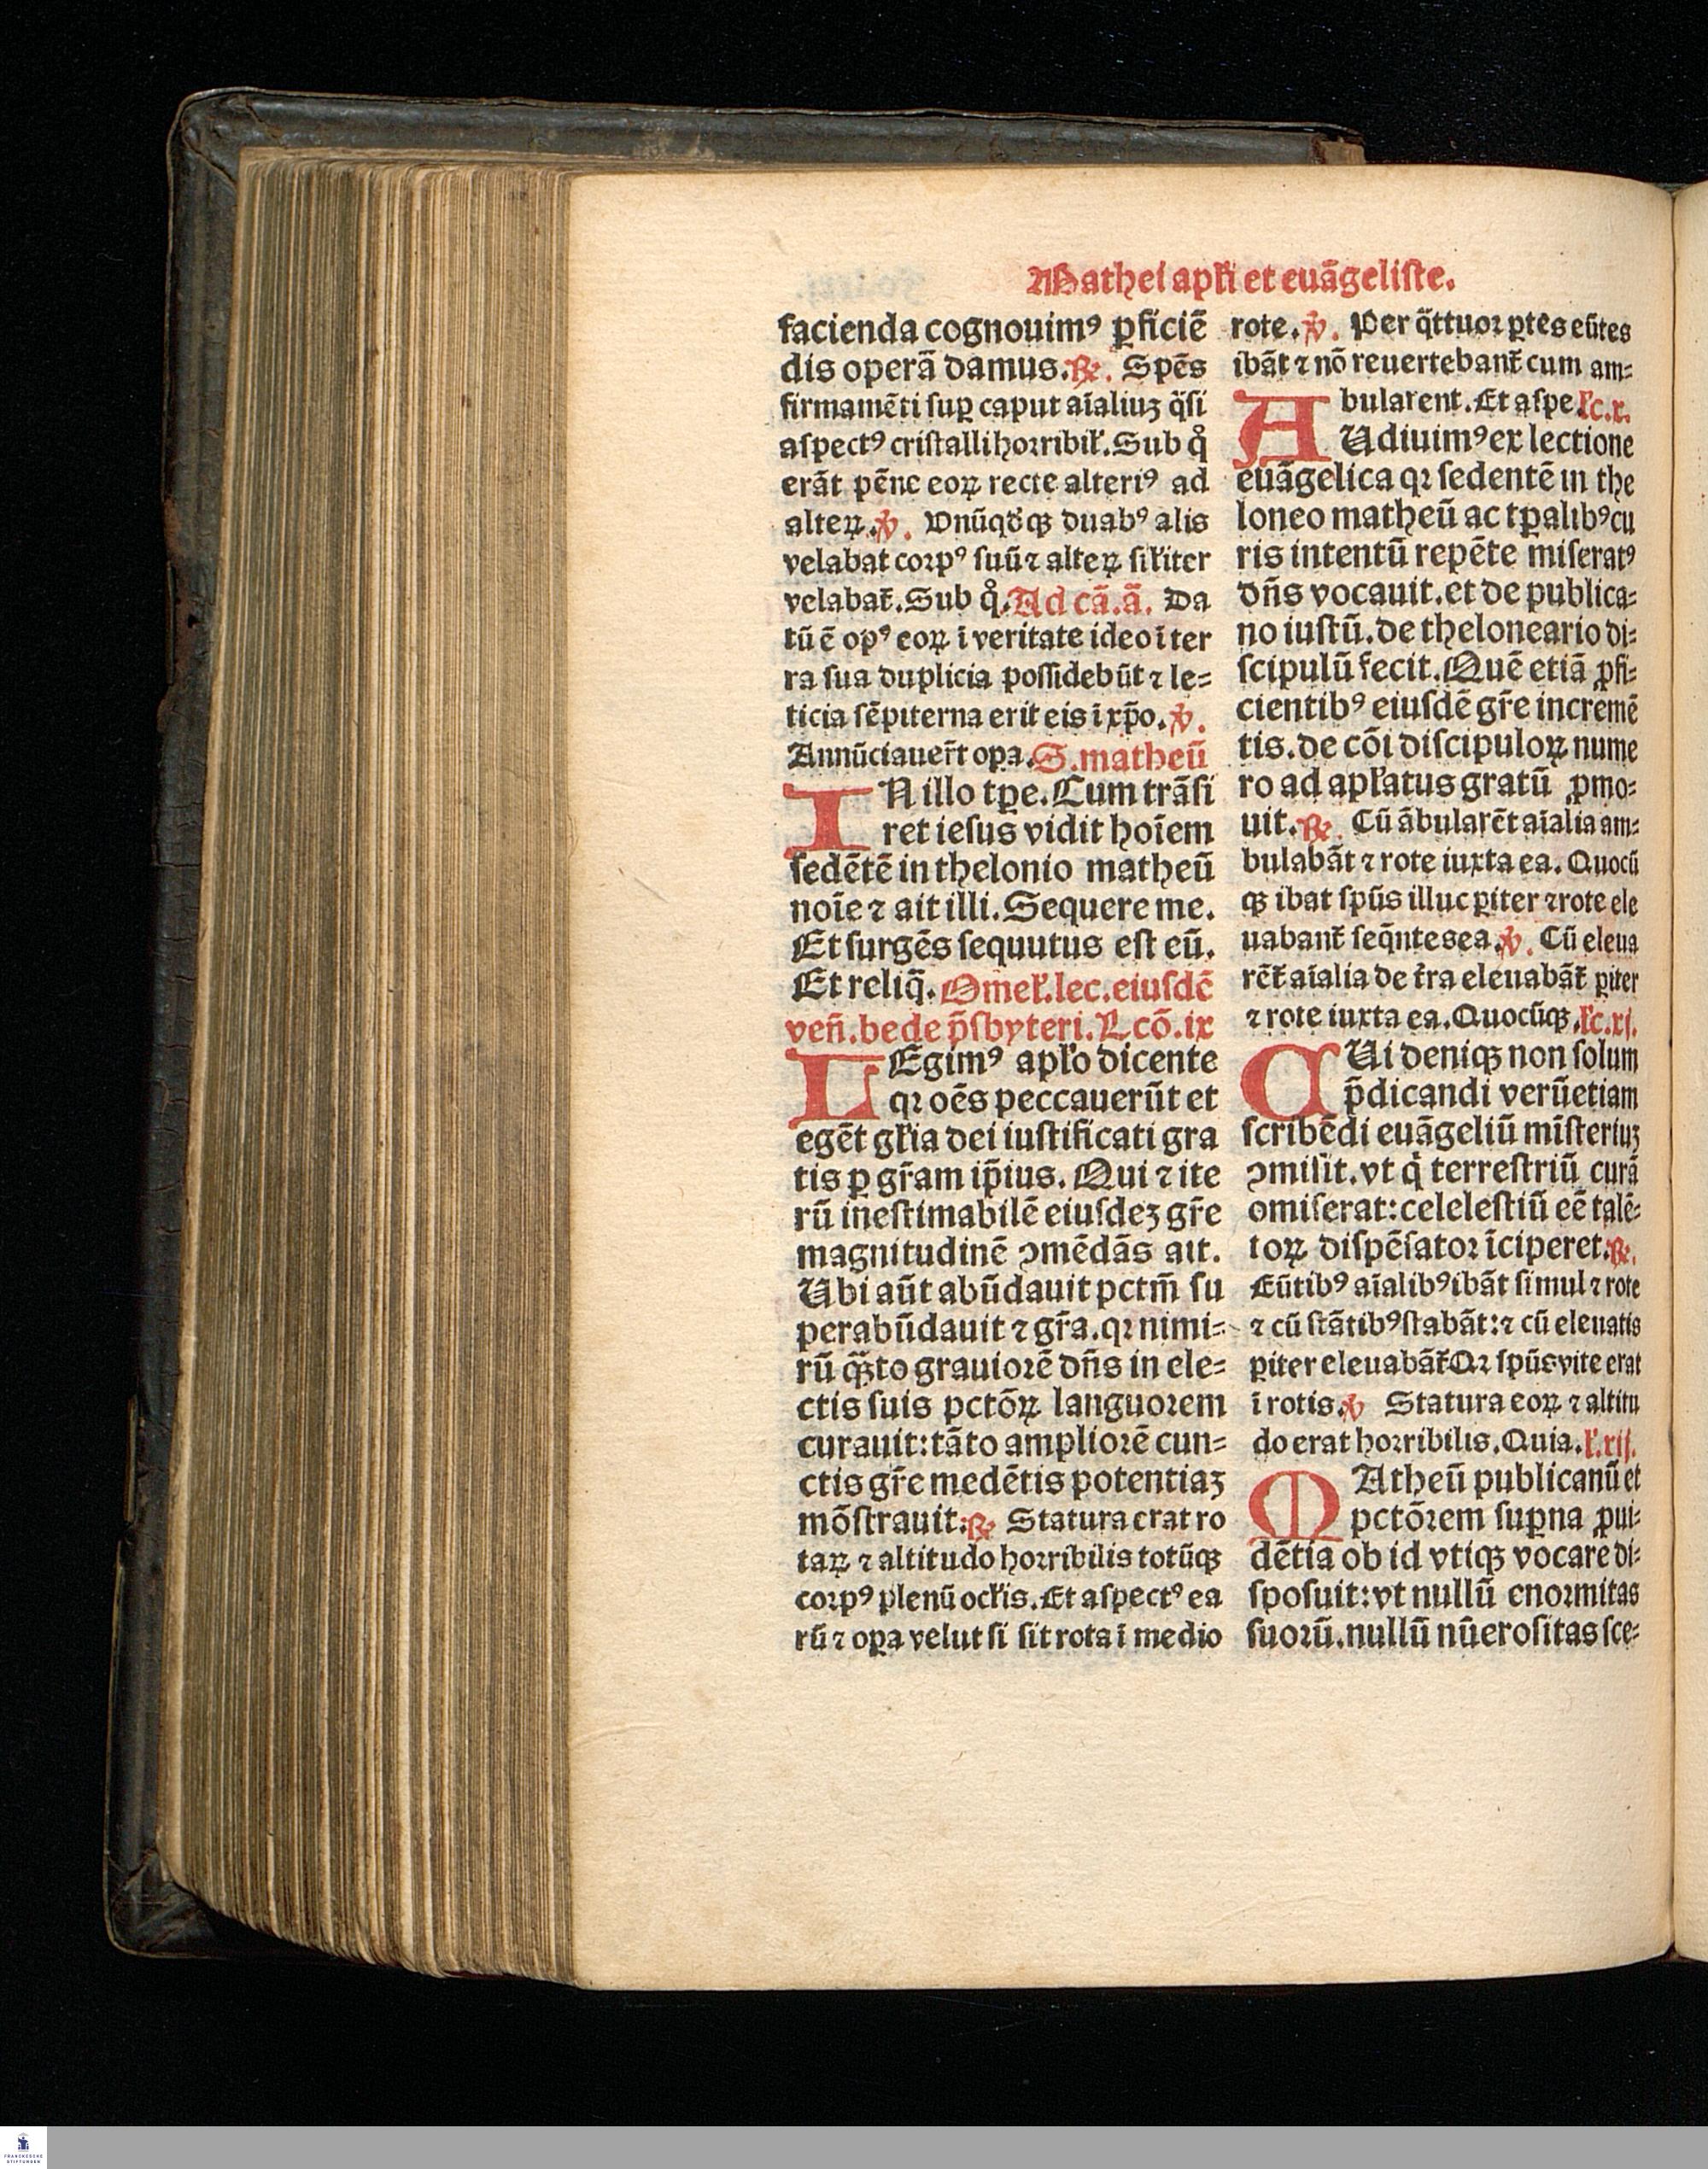 Mathei apłi et euãgeliſte.
facienda cognouimꝰ ꝑficiẽ
dis operã damus.℟. Spẽs
firmamẽti ſuꝑ caput aĩaliuꝫ q̃ſi
aſpectꝰ criſtalli horribił. Sub q̊
erãt pẽne eoꝝ recte alteriꝰ ad
alteꝝ.℣. Vnũqd̕qꝫ duabꝰ alis
velabat corpꝰ ſuũ ⁊ alteꝝ ſiłiter
velabat̃. Sub q̊. Ad cã.ã. Da
tũ ẽ opꝰ eoꝝ ĩ veritate ideo ĩ ter
ra ſua duplicia poſſidebũt ⁊ le⸗
ticia ſẽpiterna erit eis ĩ xp̃o.℣.
Annũciauer̃t opa. S. matheũ
IN illo tꝑe. Cum trãſi
ret ieſus vidit hoĩem
ſedẽtẽ in thelonio matheũ
noĩe ⁊ ait illi. Sequere me.
Et ſurgẽs ſequutus eſt eũ.
Et reliq̃. Omeł. lec. eiuſdẽ
veñ. bede p̃ſbyteri. Lcõ. ix
LEgimꝰ apło dicente
qꝛ oẽs peccauerũt et
egẽt głia dei iuſtificati gra
tis ꝑ gr̃am ip̃ius. Qui ⁊ ite
rũ ineſtimabilẽ eiuſdeꝫ gr̃e
magnitudinẽ ꝯmẽdãs ait.
Ubi aũt abũdauit pctm̃ ſu
perabũdauit ⁊ gr̃a. qꝛ nimi⸗
rũ qꝫ̃to grauiorẽ dñs in ele⸗
ctis ſuis pctõꝝ languorem
curauit: tãto ampliorẽ cun⸗
ctis gr̃e medẽtis potentiaꝫ
mõſtrauit.℟ Statura erat ro
taꝝ ⁊ altitudo horribilis totũqꝫ
corpꝰ plenũ ocłis. Et aſpectꝰ ea
rũ ⁊ oꝑa velut ſi ſit rota ĩ medio
rote.℣. Per q̃ttuor ꝑtes eũtes
ibãt ⁊ nõ reuertebant̃ cum am⸗
bularent. Et aſpe. łc. x.
AUdiuimꝰ ex lectione
euãgelica qꝛ ſedentẽ in the
loneo matheũ ac tꝑalibꝰ cu
ris intentũ repẽte miſeratꝰ
dñs vocauit. et de publica⸗
no iuſtũ. de theloneario di⸗
ſcipulũ fecit. Quẽ etiã ꝓfi⸗
cientibꝰ eiuſdẽ gr̃e incremẽ
tis. de cõi diſcipuloꝝ nume
ro ad apłatus gratũ ꝓmo⸗
uit.℟. Cũ ãbularẽt aĩalia am⸗
bulabãt ⁊ rote iuxta ea. Quocũ
qꝫ ibat ſpũs illuc ꝑiter ⁊ rote ele
uabant̃ ſeq̃ntes ea.℣. Cũ eleua
rẽt̃ aĩalia de t̃ra eleuabãt̃ ꝑiter
⁊ rote iuxta ea. Quocũqꝫ. łc. xj.
QUi deniqꝫ non ſolum
p̃dicandi verũ etiam
ſcribẽdi euãgeliũ mĩſteriuꝫ
ꝯmiſit. vt q̇ terreſtriũ curã
omiſerat: celeleſtiũ eẽ talẽ⸗
toꝝ diſpẽſator ĩciperet.℟.
Eũtibꝰ aĩalibꝰ ibãt ſimul ⁊ rote
⁊ cũ ſtãtibꝰ ſtabãt: ⁊ cũ eleuatis
ꝑiter eleuabãt̃ Qꝛ ſpũs vite erat
ĩ rotis.℣ Statura eoꝝ ⁊ altitu
do erat horribilis. Quia. ł. xij.
MAtheũ publicanũ et
pctõrem ſuꝑna ꝓui⸗
dẽtia ob id vtiqꝫ vocare di⸗
ſpoſuit: vt nullũ enormitas
ſuorũ. nullũ nũeroſitas ſce⸗
FRANCKESCHE
STIFTUNGEN